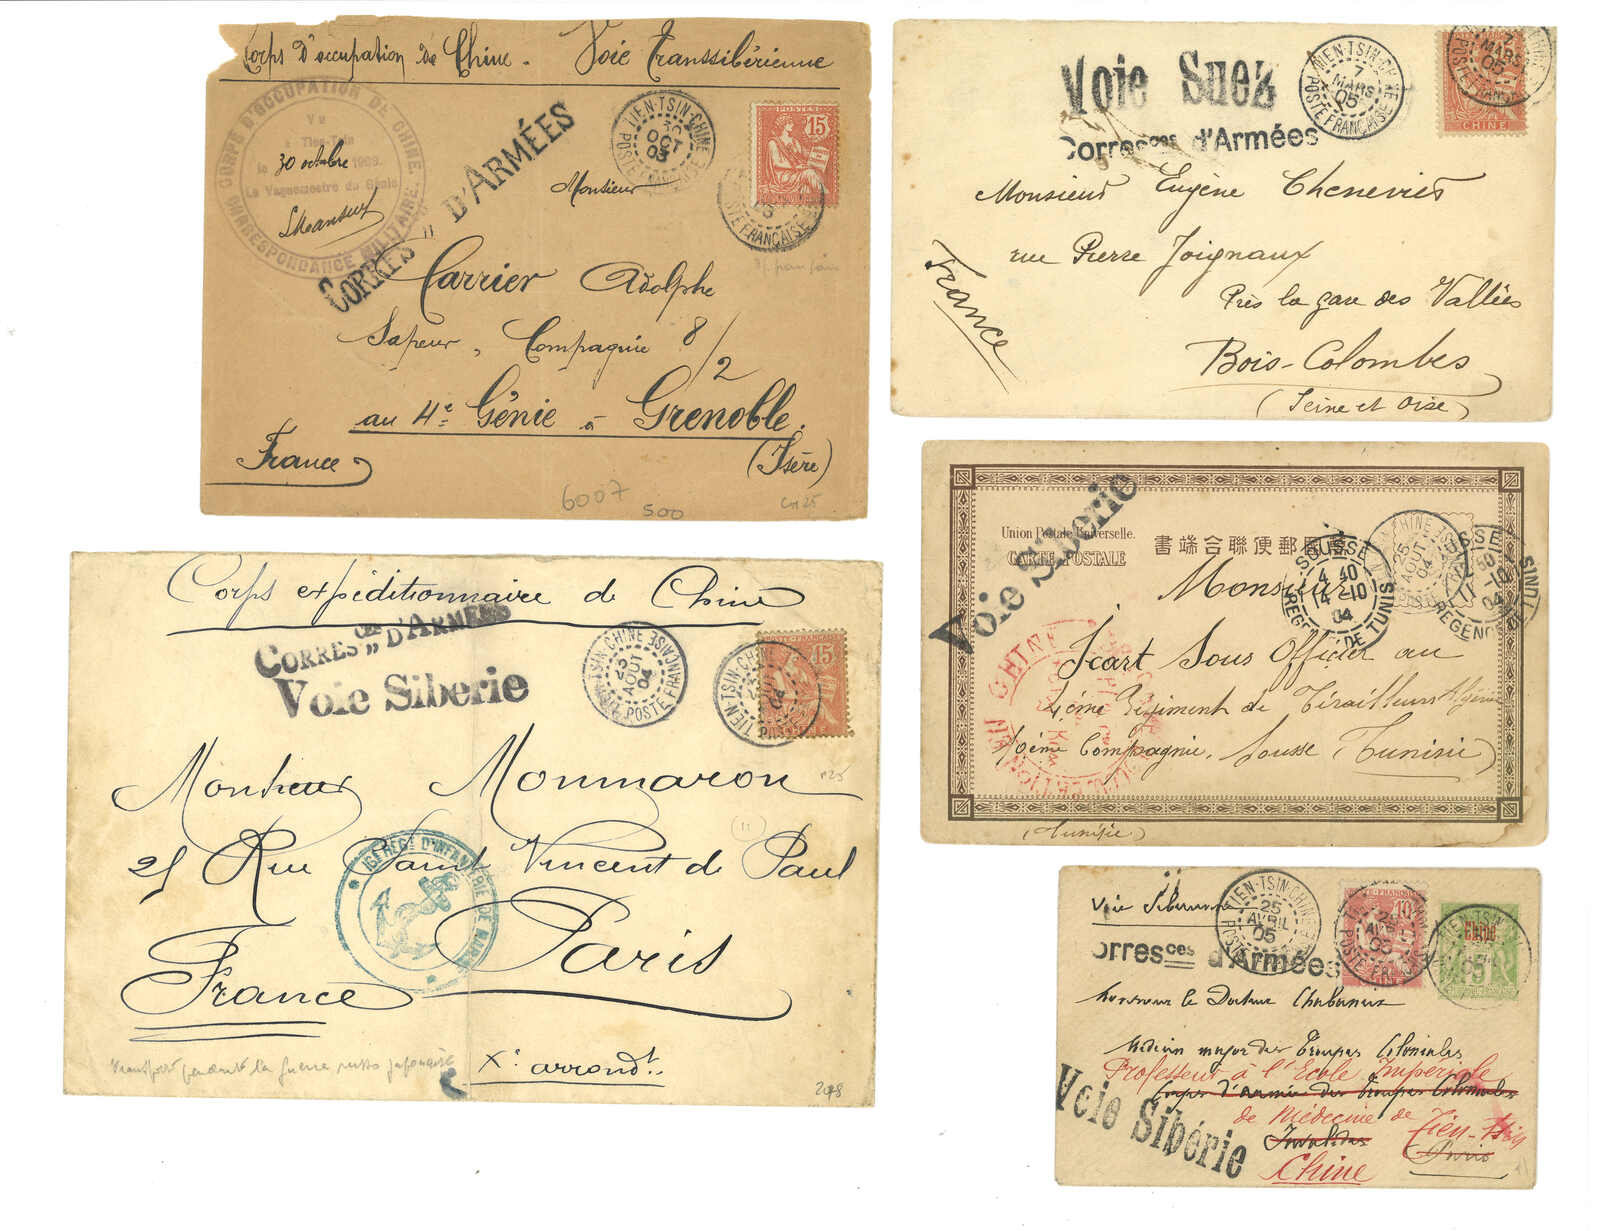 Corps d'occupation de Chine. Voie Transsibérienne
CORPS D'OCCUPATION DE CHINE.
CORRESPONDANCE MILITAIRE.
Vu
à Tien-Tsin
le 30 octobre 1903.
Le Vaguemestre du Génie
CORRES " D'ARMÉES
TIEN-TSIN-CHINE
OCT
03
POSTE FRANÇAISE
POSTES
15
POSTE FRANÇAISE
Monsieur
Carrier Adolphe
Sapeur, Compagnie 8/2
au 4e Génie à Grenoble.
(Isère)
France
6007
500
Voie Suez
Corresces d'Armées
TIEN-TSIN-CHINE
7
MARS
05
POSTE FRANÇAISE
7
MARS
05
CHINE
Monsieur Eugène Chenevier
rue Pierre Joignaux
Près la gare des Vallées
Bois-Colombes
(Seine et Oise)
France
Union Postale Universelle.
CARTE POSTALE
Voie Siberie
SOUSSE
4 40
14-10
04
REGENCE DE TUNIS
25
AOUT
04
Monsieur
Icart Sous Officier au
4ème Régiment de Tirailleurs
10ème Compagnie, Sousse Tunisie
(Tunisie)
Corps expéditionnaire de Chine
CORRESces D'ARMEES
Voie Siberie
TIEN-TSIN-CHINE
25
AOUT
04
POSTE FRANÇAISE
15
TIEN-TSIN-CHINE
Monsieur Monmaron
25 Rue Saint Vincent de Paul
Paris
France
Xe arrondt.
16E REGt D'INFANTERIE DE MARINE
transport pendant la guerre russo japonaise
Voie Sibérienne
TIEN-TSIN-CHINE
25
AVRIL
05
POSTE FRANÇAISE
10
CHINE
5
orresces d'Armées
Monsieur le Docteur Chabaneix
Médecin major des Troupes Coloniales
Professeur à l'Ecole Impériale
Corps d'armée des Troupes Coloniales
de Médecine de Tien-Tsin
Invalides
Paris
Chine
Voie Sibérie